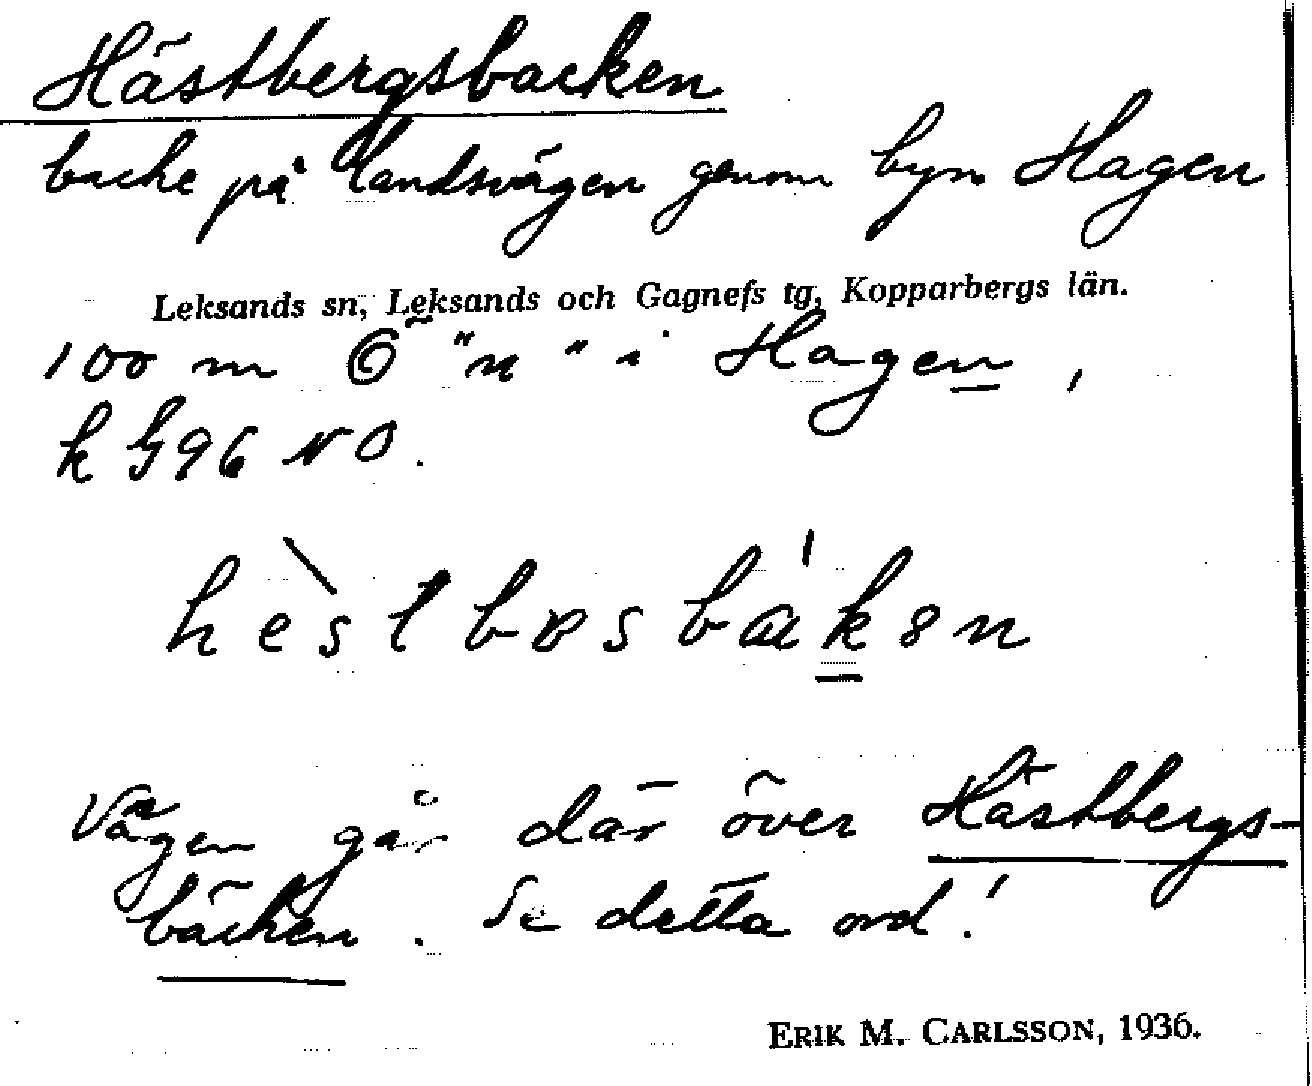 Hästbergsbacken
backe på landsvägen genom byn Hagen
Leksands sn, Leksands och Gagnefs tg, Kopparbergs län.
100 m Ö "n" i Hagen,
k G96 NO.
hèstbɐsbàkən
Vägen går där över Hästbergs-
bäcken. Se detta ord!
ERIK M. CARLSSON, 1936.